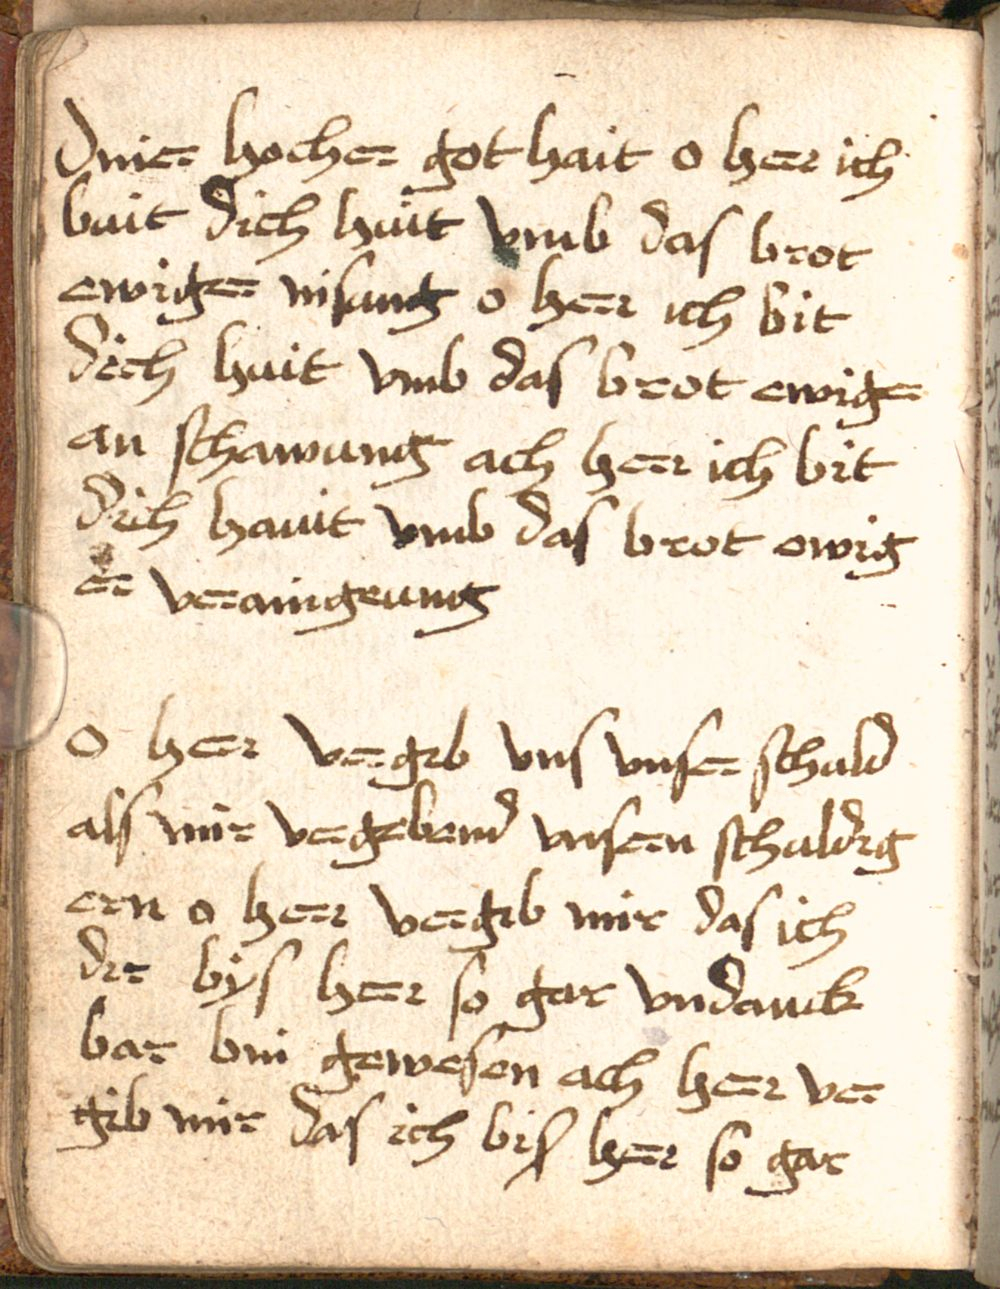 Diner hocher gothait o herr ich
bait dich huit vmb das brot
ewiger nisung o herr ich bit
dich huit vmb das brot ewiger
an schawung ach herr ich bit
dich hauit vmb das brot ewig
er verainigeung
O herr vergib vns vnser schuld
als mir vergebend vnsern schuldig
ern o herr vergib mir das ich
dir bÿs herr so gar vndanck
bar bin gewesen ach herr ver
gib mir das ich bis herr so gar